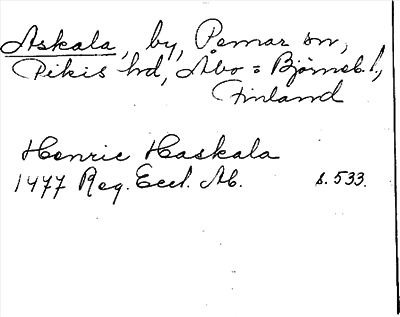 Askala, by, Pemar sn,
Pikis hd, Åbo = Björneb. l.,
Finland
Henric Haskala
1477 Reg. Eccl. Ab. s. 533.